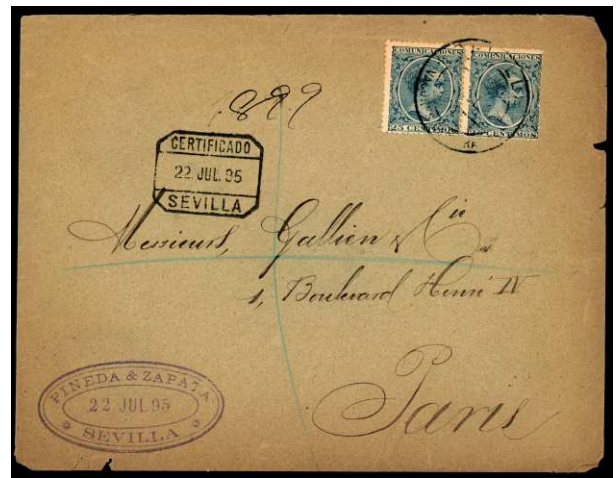 COMUNICACIONES COMUNICACIONES
25 CENTIMOS CENTIMOS
899
CERTIFICADO
22 JUL. 95
SEVILLA
Messieurs, Gallien & Cie
1, Boulevard Henri IV
Paris
PINEDA & ZAPATA
22 JUL. 95
SEVILLA